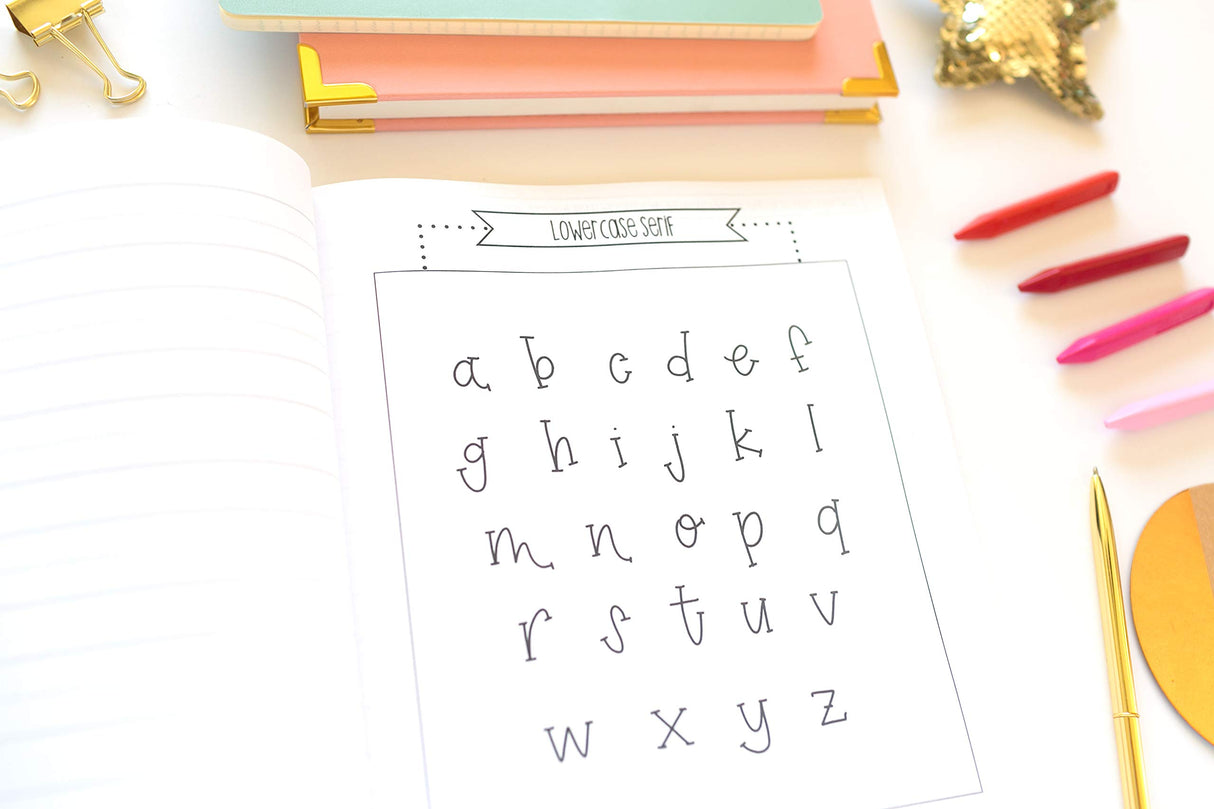 Lowercase serif
a b c d e f
g h i j k l
m n o p q
r s t u v
w x y z